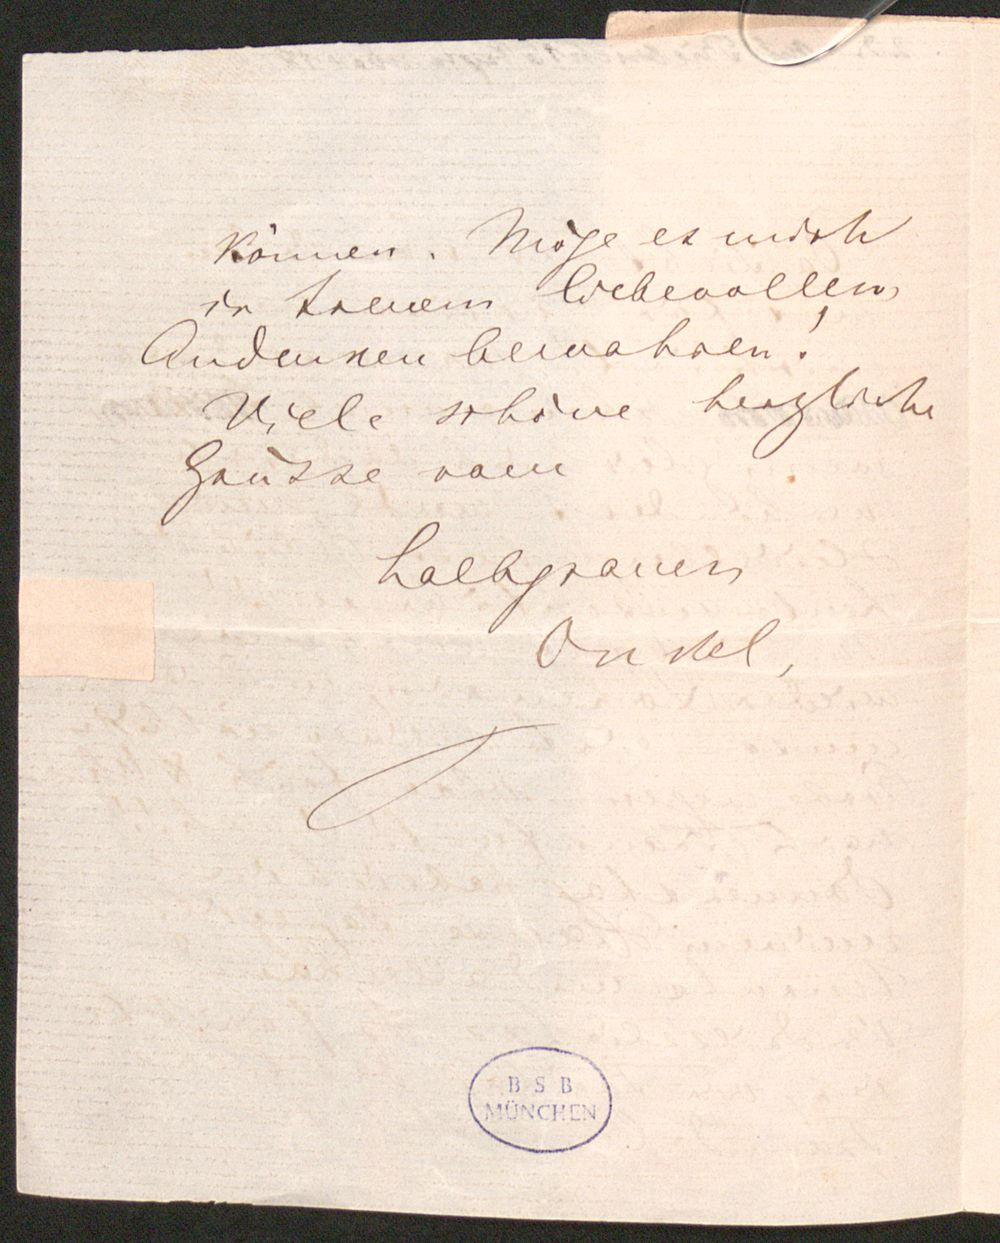 können. Möge es mich
in treuem liebevollen,
Andenken bewahren!
Viele schöne herzliche
Grüsse vom
halbgrauen
Onkel,
B S B
MÜNCHEN